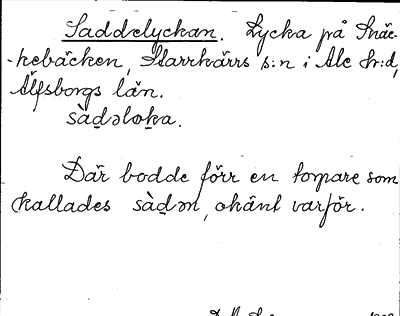 Saddelyckan. Lycka på Snäc-
-kebäcken, Starrkärrs s:n i Ale hr:d,
Älfsborgs län.
sàḏəloḵa.
Där bodde förr en torpare som
kallades sàḏən, okänt varför.